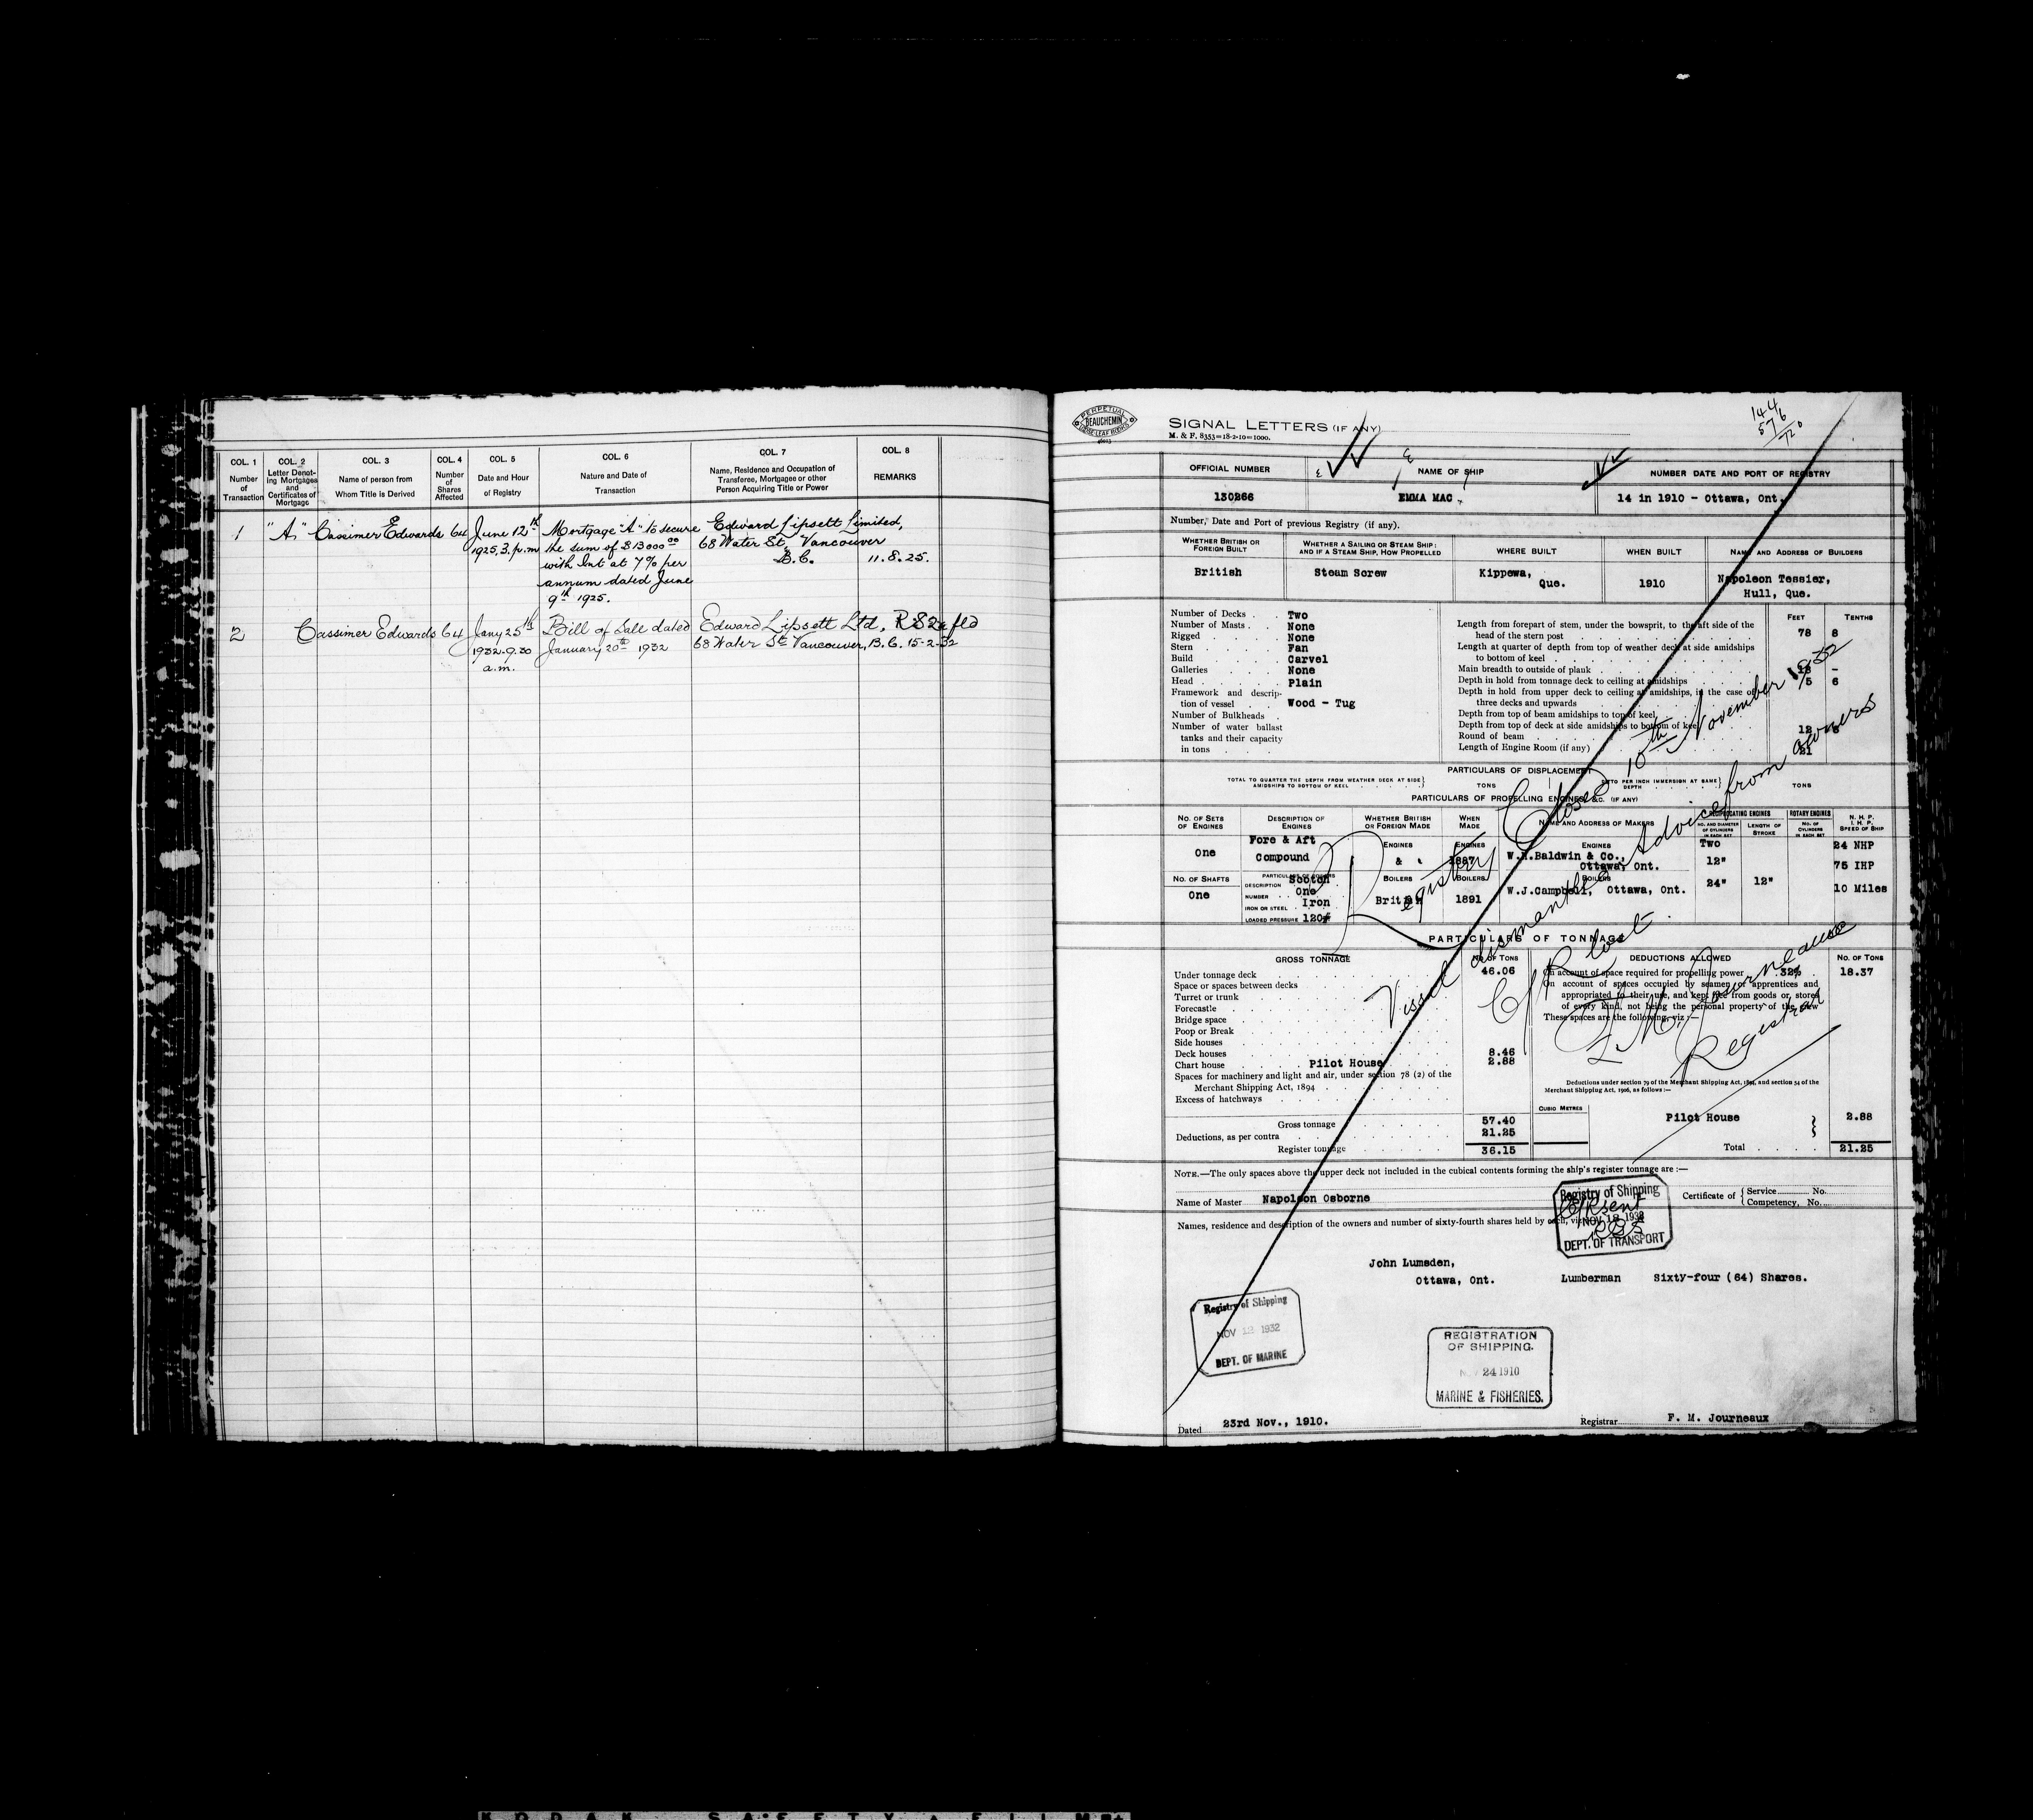 COL. 1 COL. 2 COL. 3 COL. 4 COL. 5 COL. 6 COL. 7 COL. 8
Number of Transaction
Letter Denoting Mortgages and Certificates of Mortgage
Name of person from Whom Title is Derived
Number of Shares Affected
Date and Hour of Registry
Nature and Date of Transaction
Name, Residence and Occupation of Transferee, Mortgagee or other Person Acquiring Title or Power
REMARKS
1 "A" Cassimer Edwards 64 June 12th Mortgage "A" to secure Edward Lipsett Limited,
1925, 3. p.m the sum of $13000.00 68 Water St, Vancouver
with Int at 7% per B.C. 11.8.25.
annum dated June
9th 1925.
2 Cassimer Edwards 64 Jany 25th Bill of Sale dated Edward Lipsett Ltd,
1932. 9.30 January 20th 1932 68 Water St Vancouver, B.C. 15-2-32
a.m.
PERPETUAL
BEAUCHEMIN
LOOSE-LEAF BOOKS
SIGNAL LETTERS (IF ANY)
M. & F. 8353=18-2-10=1000.
144
57/6
720
OFFICIAL NUMBER NAME OF SHIP NUMBER DATE AND PORT OF REGISTRY
130266 EMMA MAC 14 in 1910 - Ottawa, Ont.
Number, Date and Port of previous Registry (if any).
WHETHER BRITISH OR FOREIGN BUILT
WHETHER A SAILING OR STEAM SHIP: AND IF A STEAM SHIP, HOW PROPELLED
WHERE BUILT WHEN BUILT NAME AND ADDRESS OF BUILDERS
British Steam Screw Kippewa, Que. 1910 Napoleon Tessier,
Hull, Que.
Number of Decks Two
Number of Masts None
Rigged None
Stern Fan
Build Carvel
Galleries None
Head Plain
Framework and description of vessel Wood - Tug
Number of Bulkheads
Number of water ballast
tanks and their capacity
in tons
FEET TENTHS
Length from forepart of stem, under the bowsprit, to the aft side of the
head of the stern post 78 8
Length at quarter of depth from top of weather deck at side amidships
to bottom of keel
Main breadth to outside of plank 18 -
Depth in hold from tonnage deck to ceiling at amidships 5 6
Depth in hold from upper deck to ceiling at amidships, in the case of
three decks and upwards
Depth from top of beam amidships to top of keel
Depth from top of deck at side amidships to bottom of keel
Round of beam 12
Length of Engine Room (if any) 21
PARTICULARS OF DISPLACEMENT
TOTAL TO QUARTER THE DEPTH FROM WEATHER DECK AT SIDE AMIDSHIPS TO BOTTOM OF KEEL TONS
DITTO PER INCH IMMERSION AT SAME DEPTH TONS
PARTICULARS OF PROPELLING ENGINES, &C. (IF ANY)
NO. OF SETS OF ENGINES
DESCRIPTION OF ENGINES
WHETHER BRITISH OR FOREIGN MADE
WHEN MADE
NAME AND ADDRESS OF MAKERS
RECIPROCATING ENGINES
NO. AND DIAMETER OF CYLINDERS IN EACH SET
LENGTH OF STROKE
ROTARY ENGINES
NO. OF CYLINDERS IN EACH SET
N. H. P.
I. H. P.
SPEED OF SHIP
One Fore & Aft Compound
ENGINES ENGINES 1887 ENGINES
W.H.Baldwin & Co., Ottawa, Ont.
Two 12" 24" 12"
24 NHP
75 IHP
10 Miles
NO. OF SHAFTS
One
PARTICULARS OF BOILERS
DESCRIPTION Scotch
NUMBER One
IRON OR STEEL Iron
LOADED PRESSURE 120#
BOILERS British
BOILERS 1891
BOILERS W.J.Campbell, Ottawa, Ont.
PARTICULARS OF TONNAGE
GROSS TONNAGE NO. OF TONS
Under tonnage deck 46.06
Space or spaces between decks
Turret or trunk
Forecastle
Bridge space
Poop or Break
Side houses
Deck houses 8.46
Chart house Pilot House 2.88
Spaces for machinery and light and air, under section 78 (2) of the
Merchant Shipping Act, 1894
Excess of hatchways
Gross tonnage 57.40
Deductions, as per contra 21.25
Register tonnage 36.15
DEDUCTIONS ALLOWED NO. OF TONS
On account of space required for propelling power 32% 18.37
On account of spaces occupied by seamen or apprentices and
appropriated to their use, and kept free from goods or stores
of every kind, not being the personal property of the crew
These spaces are the following, viz:—
Deductions under section 79 of the Merchant Shipping Act, 1894, and section 54 of the
Merchant Shipping Act, 1906, as follows:—
CUBIC METRES
Pilot House 2.88
Total 21.25
Registry Closed 10th November 1932
Vessel dismantled Advice from owners
C/R lost.
F. M. Journeaux
Registrar
NOTE.—The only spaces above the upper deck not included in the cubical contents forming the ship's register tonnage are:—
Name of Master Napoleon Osborne
Certificate of { Service No.
Competency, No.
Names, residence and description of the owners and number of sixty-fourth shares held by each, viz
Registry of Shipping
NOV 18 1932
DEPT. OF TRANSPORT
John Lumsden,
Ottawa, Ont. Lumberman Sixty-four (64) Shares.
Registry of Shipping
NOV 12 1932
DEPT. OF MARINE
REGISTRATION
OF SHIPPING.
24 1910
MARINE & FISHERIES.
Dated 23rd Nov., 1910. Registrar F. M. Journeaux
KODAK SAFETY FILM